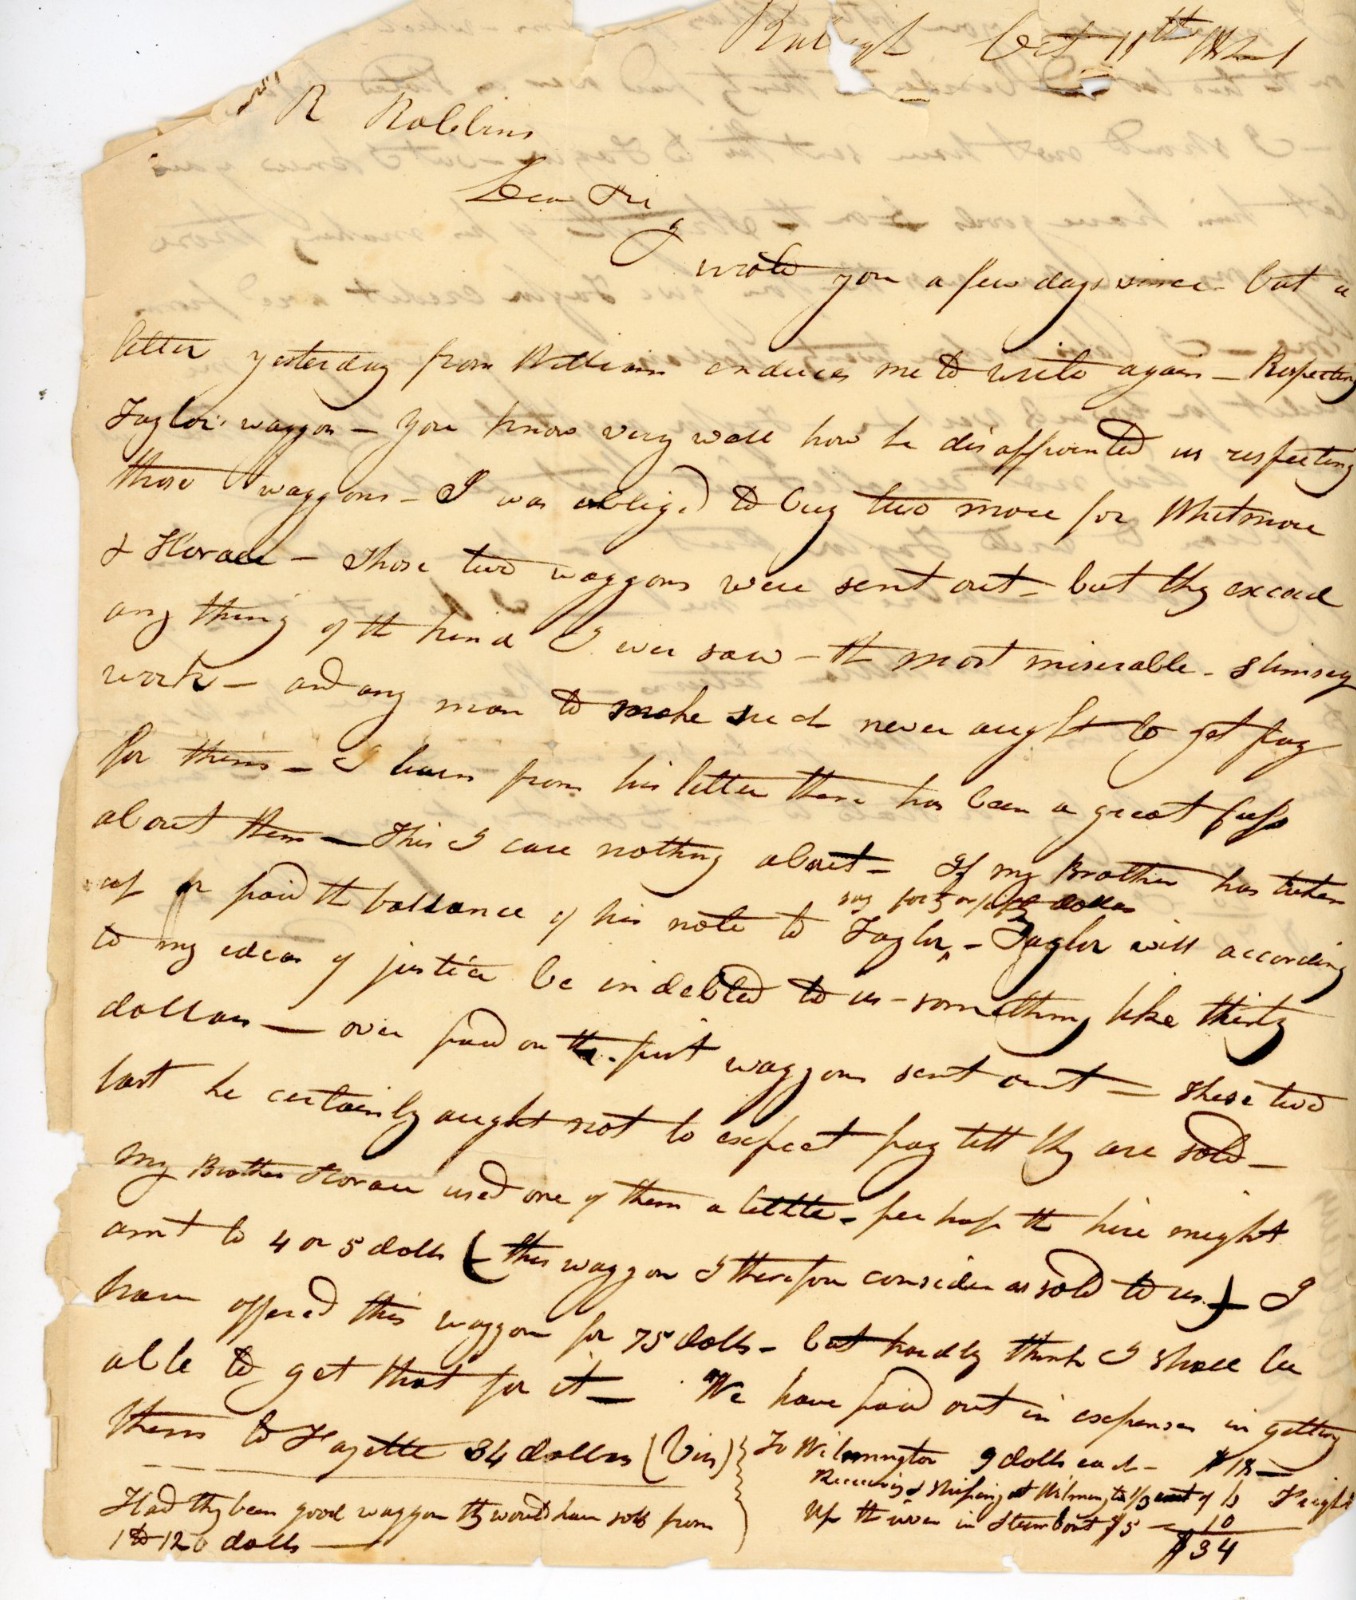 Raleigh Oct 11th 1821
R Robbins
Dear Sir
I wrote you a few days since - but a
letter yesterday from William enduces me to write again - Respecting
Taylor waggon - you know very well how he disappointed us respecting
those waggons - I was obliged to buy two more for Whitmore
& Horace - Those two waggons were sent out - but thy exceed
any thing of th kind I ever saw - th most miserable - slimsey
work - and any man to make such never aught to get pay
for them - I learn from his letter there has been a great fuss
about them - This I care nothing about - If my Brother has taken
up or paid th ballance of his note to Taylor - Taylor will according
say forty or fifty dollars
to my ideas of justice be indebted to us - something like thirty
dollars - over paid on the first waggons sent out - These two
last he certainly aught not to expect pay till thy are sold -
My Brother Horace used one of them a little - perhaps th hire might
amt to 4 or 5 dolls ( this waggon I therefore consider as sold to us ) I
have offered this waggon for 75 dolls - but hardly think I shall be
able to get that for it - We have paid out in expenses in getting
them to Fayette 34 dollars (Viz) To Wilmington 9 dolls each - $18 -
Receiving & Shiping at Wilmington of 6 Freight
Up the river in Steam boat $5 - 10
$34
Had thy been good waggon thy would have sold from
1 to 120 dolls -